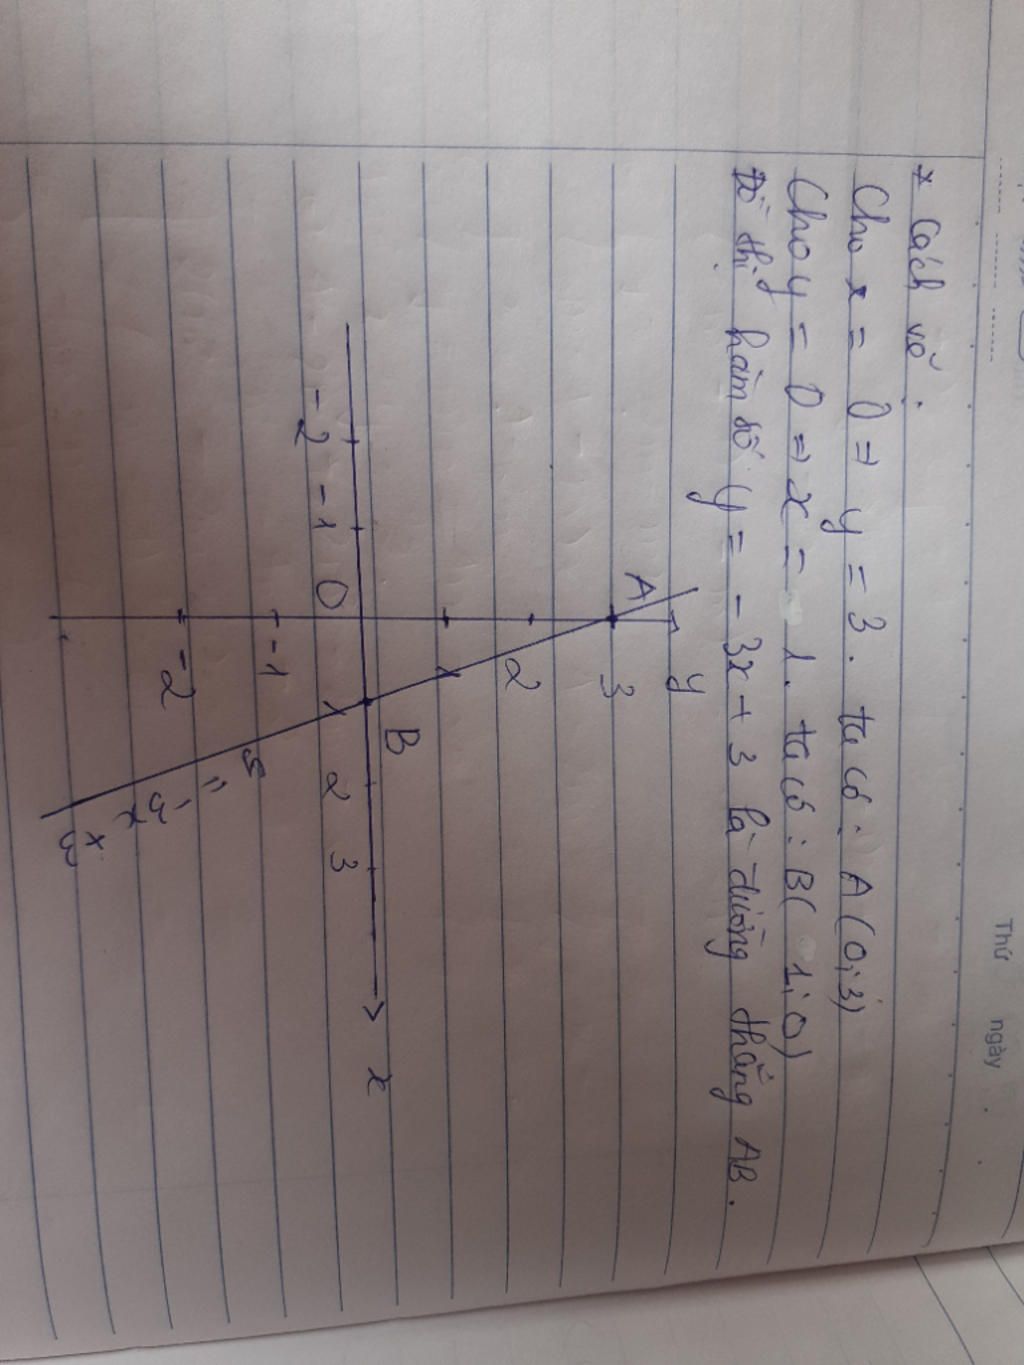 Thứ ngày
* Cách vẽ:
Cho x = 0 => y = 3. ta có: A(0;3)
Cho y = 0 => x = 1. ta có: B( 1;0)
Đồ thị hàm số y = - 3x + 3 là đường thẳng AB.
y
A
3
2
1
B
-2 -1 0 1 2 3 x
-1
-2
y = -3x + 3